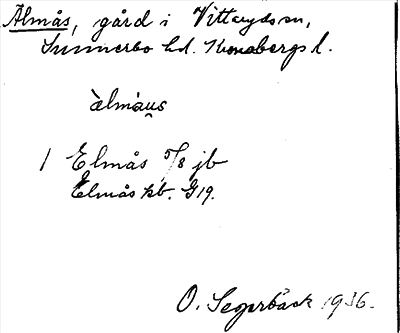 Älmås, gård i Vittaryds sn,
Sunnerbo hd. Kronobergs l.
àlmàu̯s
1 Elmås 5/8 jb
Elmås kb. G19.
O. Segerbäck 1936.